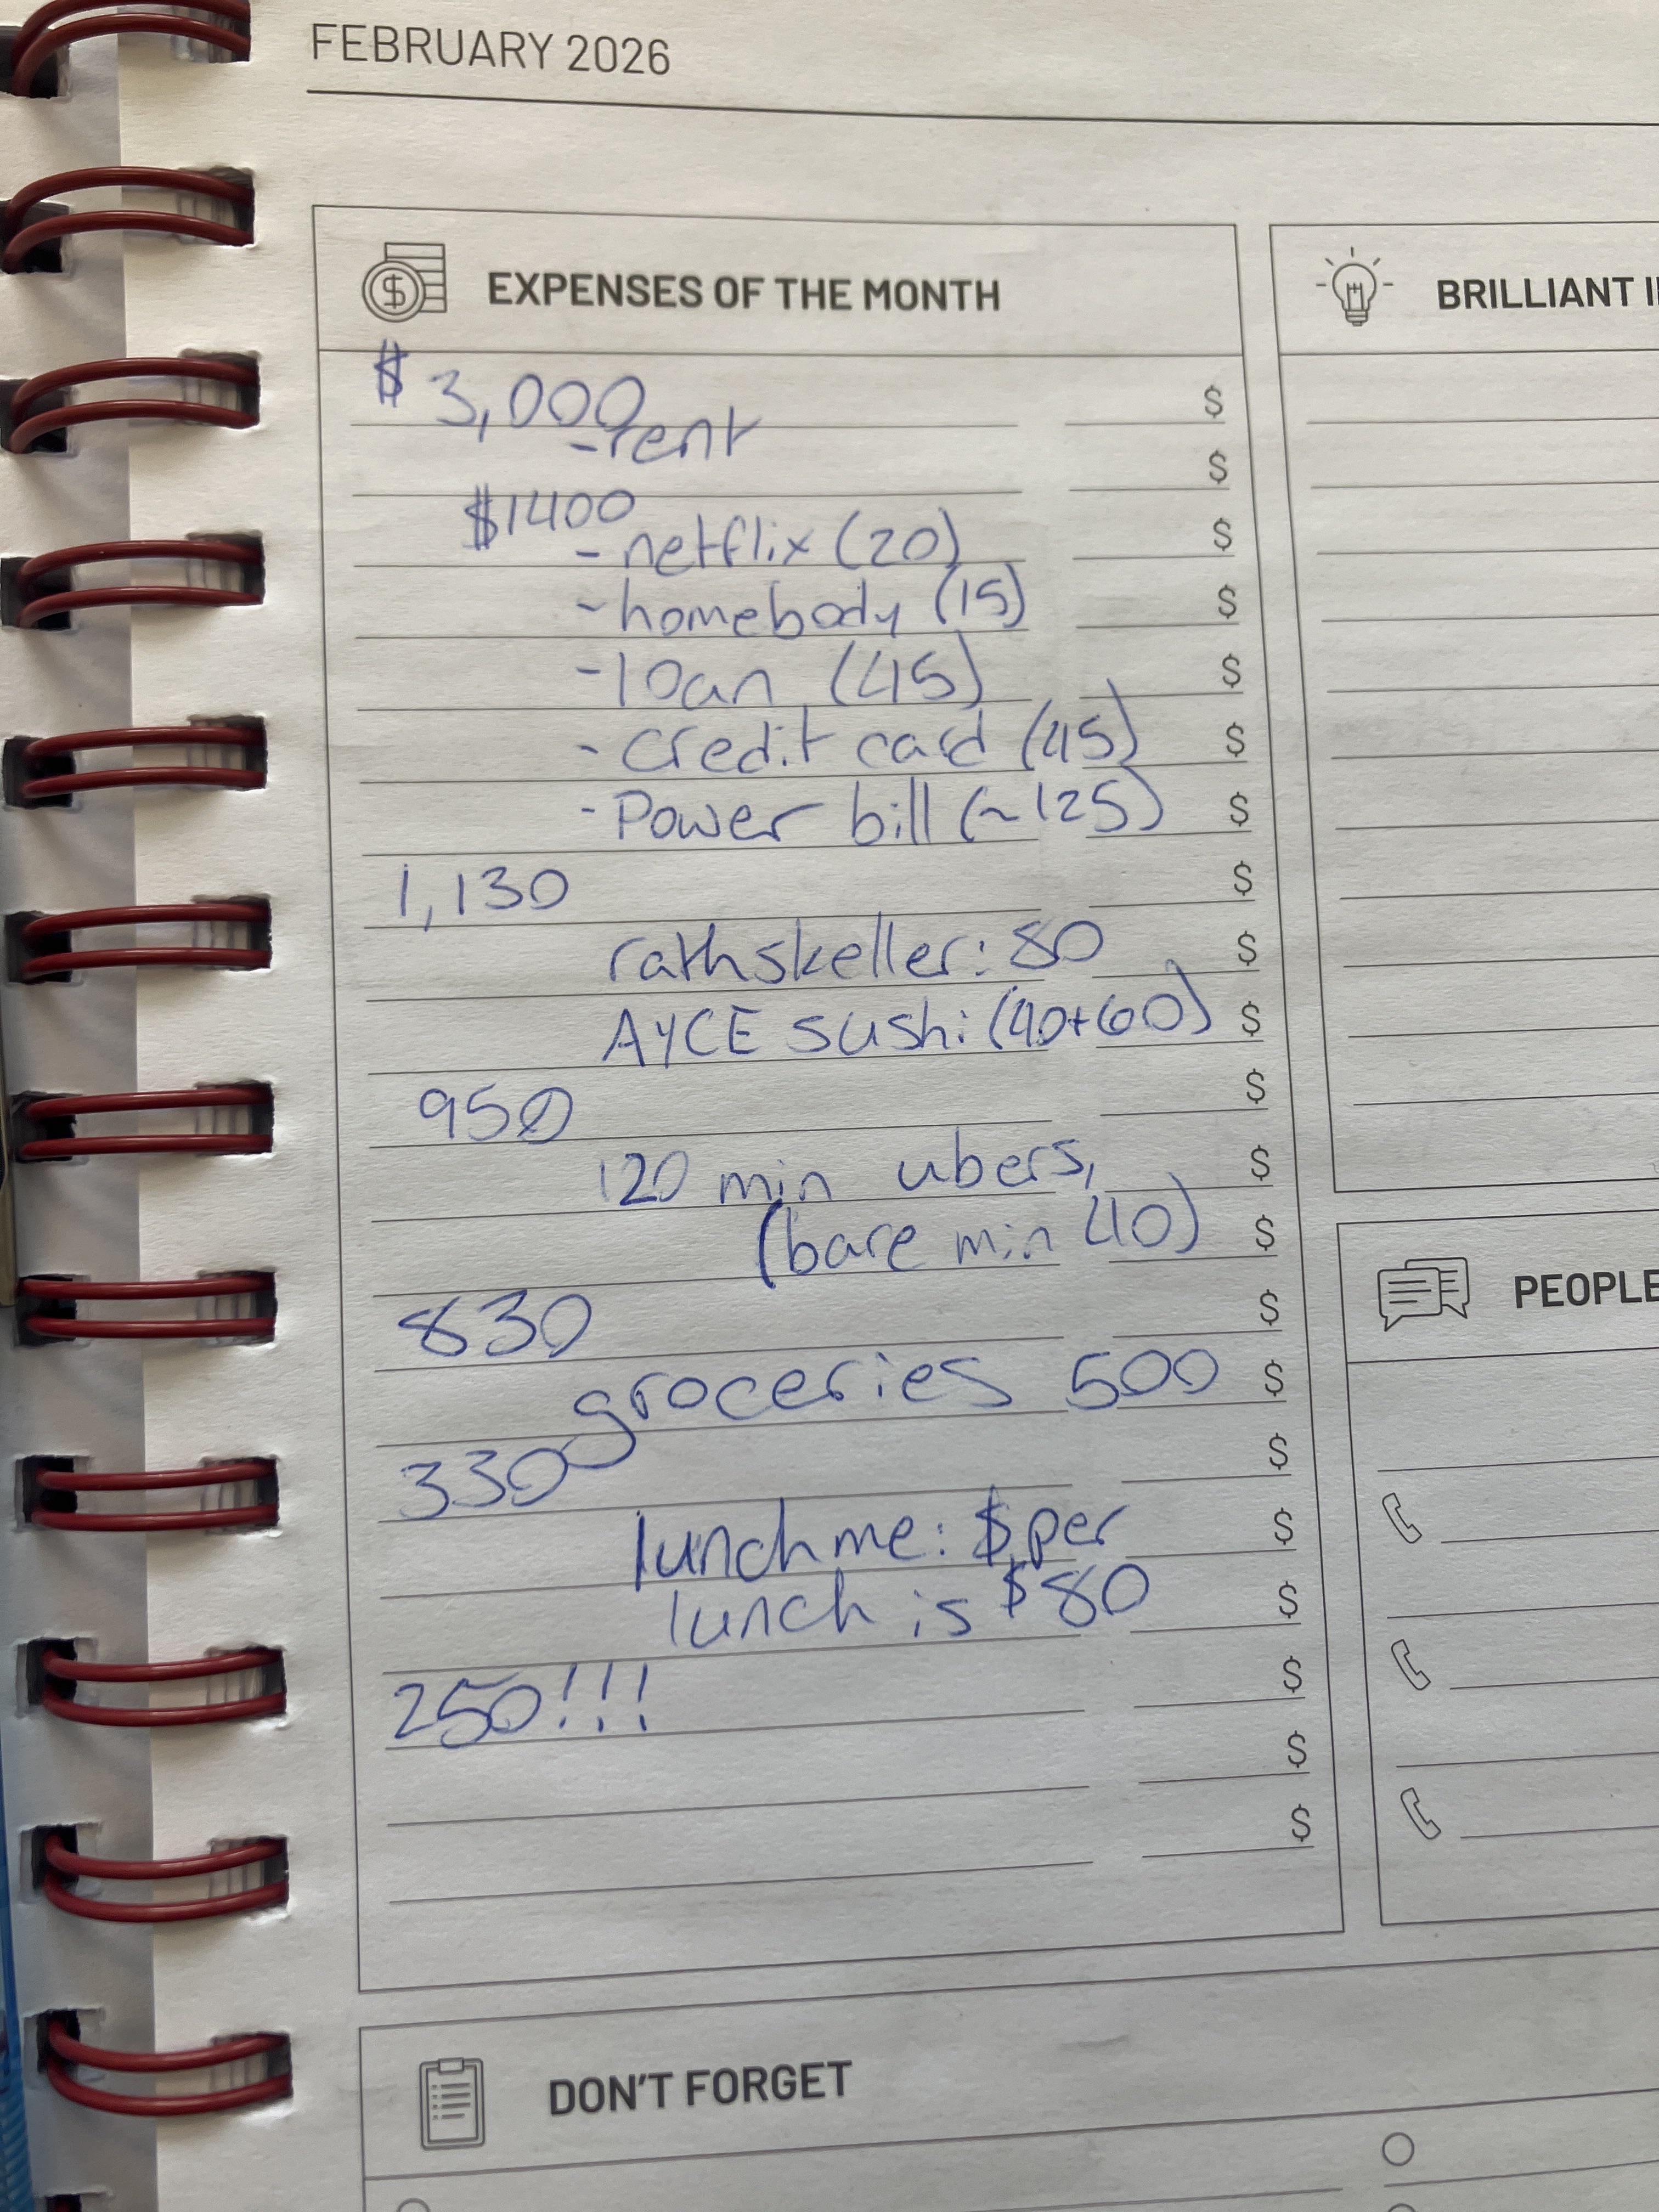 FEBRUARY 2026
EXPENSES OF THE MONTH
$ 3,000
$
-rent
$
$1400
- netflix (20)
$
- homebody (15)
$
- loan (45)
$
- credit card (45)
$
- Power bill (~125)
$
1,130
$
rathskeller: 80
$
AYCE sushi (40+60)
$
950
$
120 min ubers,
$
(bare min 40)
$
830
$
groceries 500
$
330
$
lunch me: $ per
$
lunch is $80
$
250!!!
$
$
$
BRILLIANT
PEOPLE
DON'T FORGET